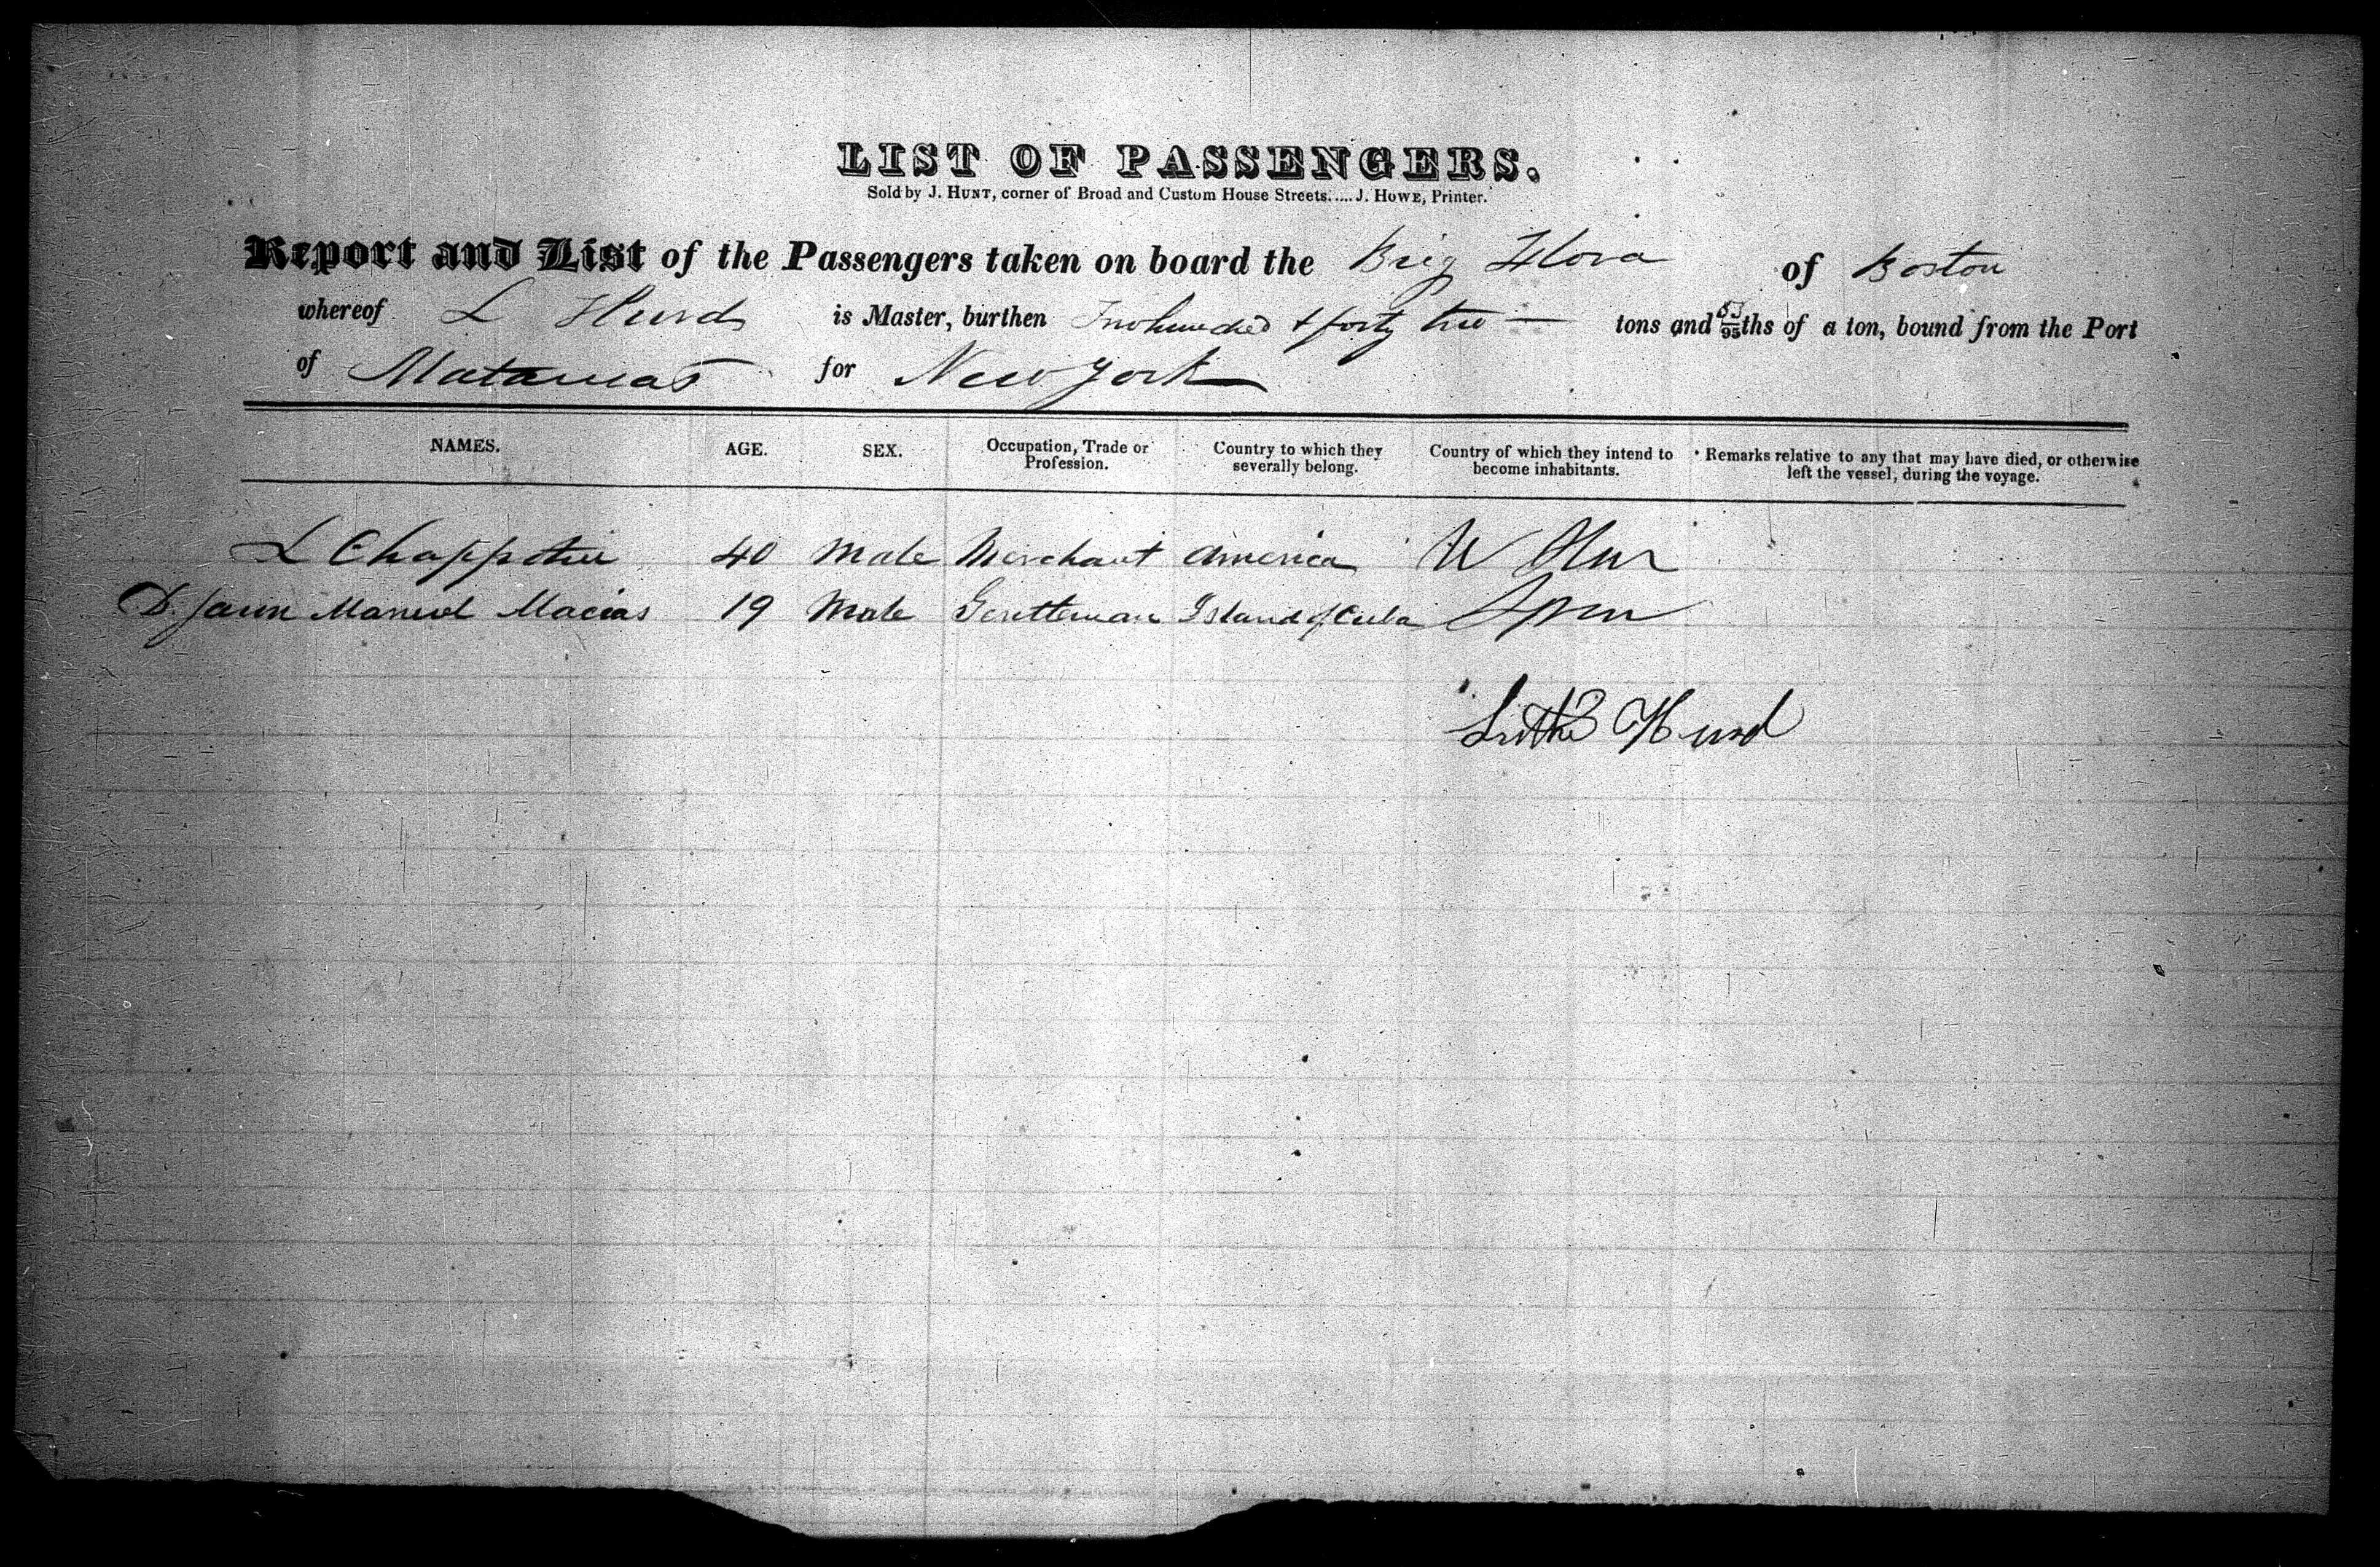 LIST OF PASSENGERS.
Sold by J. HUNT, corner of Broad and Custom House Streets.....J. HOWE, Printer.
Report and List of the Passengers taken on board the Brig Flora of Boston
whereof L Hurd is Master, burthen Two hundred & forty two tons and /95ths of a ton, bound from the Port
of Matanzas for New York
NAMES. AGE. SEX. Occupation, Trade or Profession. Country to which they severally belong. Country of which they intend to become inhabitants. Remarks relative to any that may have died, or otherwise left the vessel, during the voyage.
L 40 Male Merchant America
D. Jaun Manuel Macias 19 Male Gentleman Island of Cuba
Luther Hurd